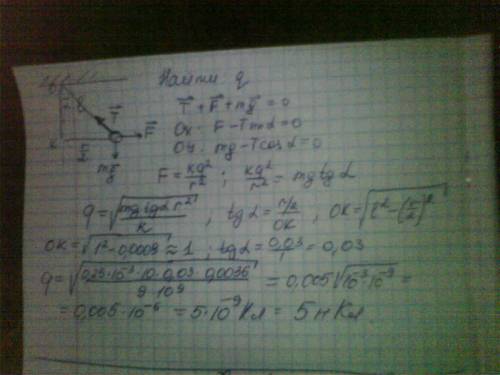 Найти q
T⃗ + F⃗ + mg⃗ = 0
Ox: F - T sin α = 0
Oy: mg - T cos α = 0
T⃗
F⃗
K
r/2
mg⃗
F = kq²/r² ; kq²/r² = mg tg α
q = √(mg tg α r²/k) ; tg α = (r/2)/OK ; OK = √(l² - (r/2)²)
OK = √(1² - 0,0009) ≈ 1 ; tg α = 0,03/1 = 0,03
q = √(0,25·10⁻³·10·0,03·0,0036/9·10⁹) = 0,005√(10⁻³·10⁻⁹) =
= 0,005·10⁻⁶ = 5·10⁻⁹ Кл = 5 нКл